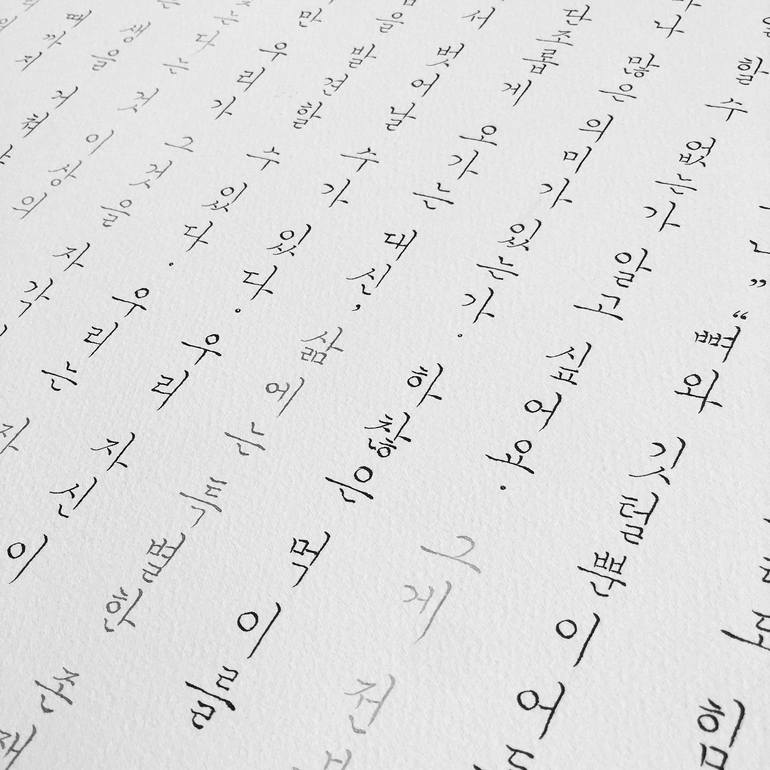 도 힘
” “뼈와 깃털뿐이어
할 수 없는가 알고 싶어요. 그게 전
나 많은 의미가 있는가. 하찮은 먹이를
단조롭게 오가는 대신, 삶에는 특별한 존재
서 벗어날 수가 있다. 우리 자신이
을 발견할 수 있다. 우리는 자
만 우리가 그것을 자각
는다는 것 이상의
생을 거쳐
때까지